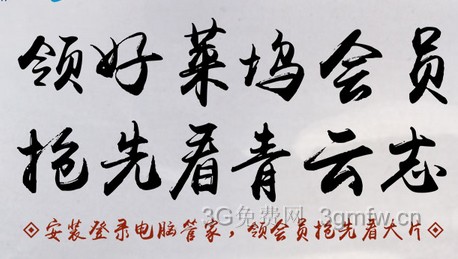 领好莱坞会员
抢先看青云志
3G免费网 3gmfw.cn
安装登录电脑管家，领会员抢先看大片